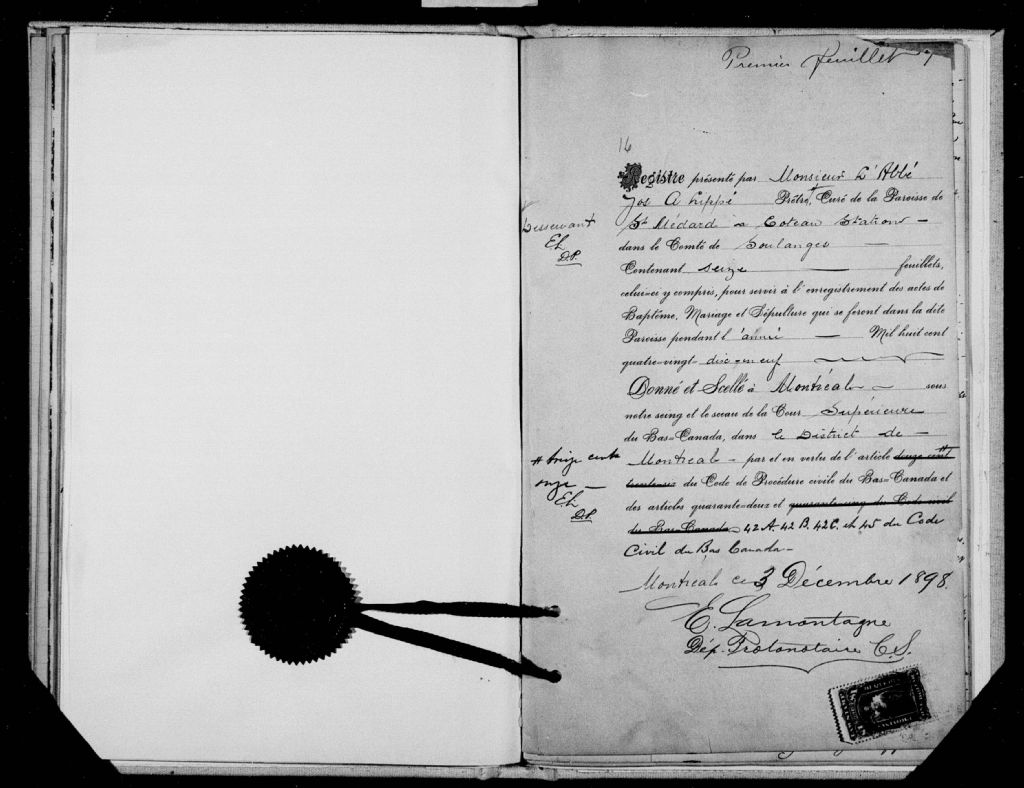 Premier feuillet
16
Registre présenté par Monsieur L'Abbé
Jos A hippé Prêtre, + Curé de la Paroisse de
+ Desservant
E.L.
D.P.
St Médard à Coteau Station —
dans le Comté de Soulanges —
Contenant seize — feuillets,
celui=ci y compris, pour servir à l'enregistrement des actes de
Baptême, Mariage et Sépulture qui se feront dans la dite
Paroisse pendant l'année — Mil huit cent
quatre=vingt- dix-neuf —
Donné et Scellé à Montréal — sous
notre seing et le sceau de la Cour Supérieure
du Bas=Canada, dans le District de —
# treize cent
onze —
E.L.
D.P.
Montréal — par et en vertu de l'article douze cent #
trente-six du Code de Procédure civile du Bas=Canada et
des articles quarante=deux et quarante=cinq du Code civil
du Bas=Canada 42 A. 42 B. 42 C. et 45 du Code
Civil du Bas Canada —
Montréal ce 3 Décembre 1898.
E. Lamontagne
Dép. Protonotaire C.S.